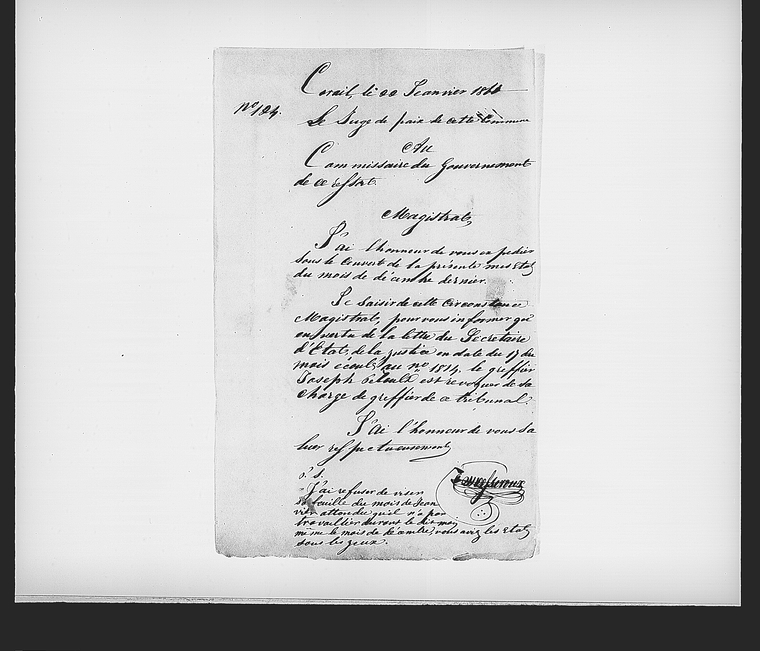 Corail, le 22 Jeanvier
Nº 124.
Le Juge de paix de cette Commune
Au
Commissaire du Gouvernement
de ce ressort.
Magistrat,
J'ai l'honneur de vous expedier
sous le couvert de la présente mes Etats
du mois de décembre dernier.
Je saisir de cette Circonstance
Magistrat, pour vous informer que
en vertu de la lettre du Secretaire
d'Etat, de la justice en date du 17 du
mois écoulé au nº 1814, le greffier
Joseph est revoquer de sa
charge de greffier de ce tribunal.
J'ai l'honneur de vous sa
luer respectueusement
P. S.
J'ai refuser de viser
la feuille du mois de Jean
vier attendu qu'il n'a pas
travaillier durant le dit mois
même le mois de décembre, vous avez les Etats
sous les yeux.